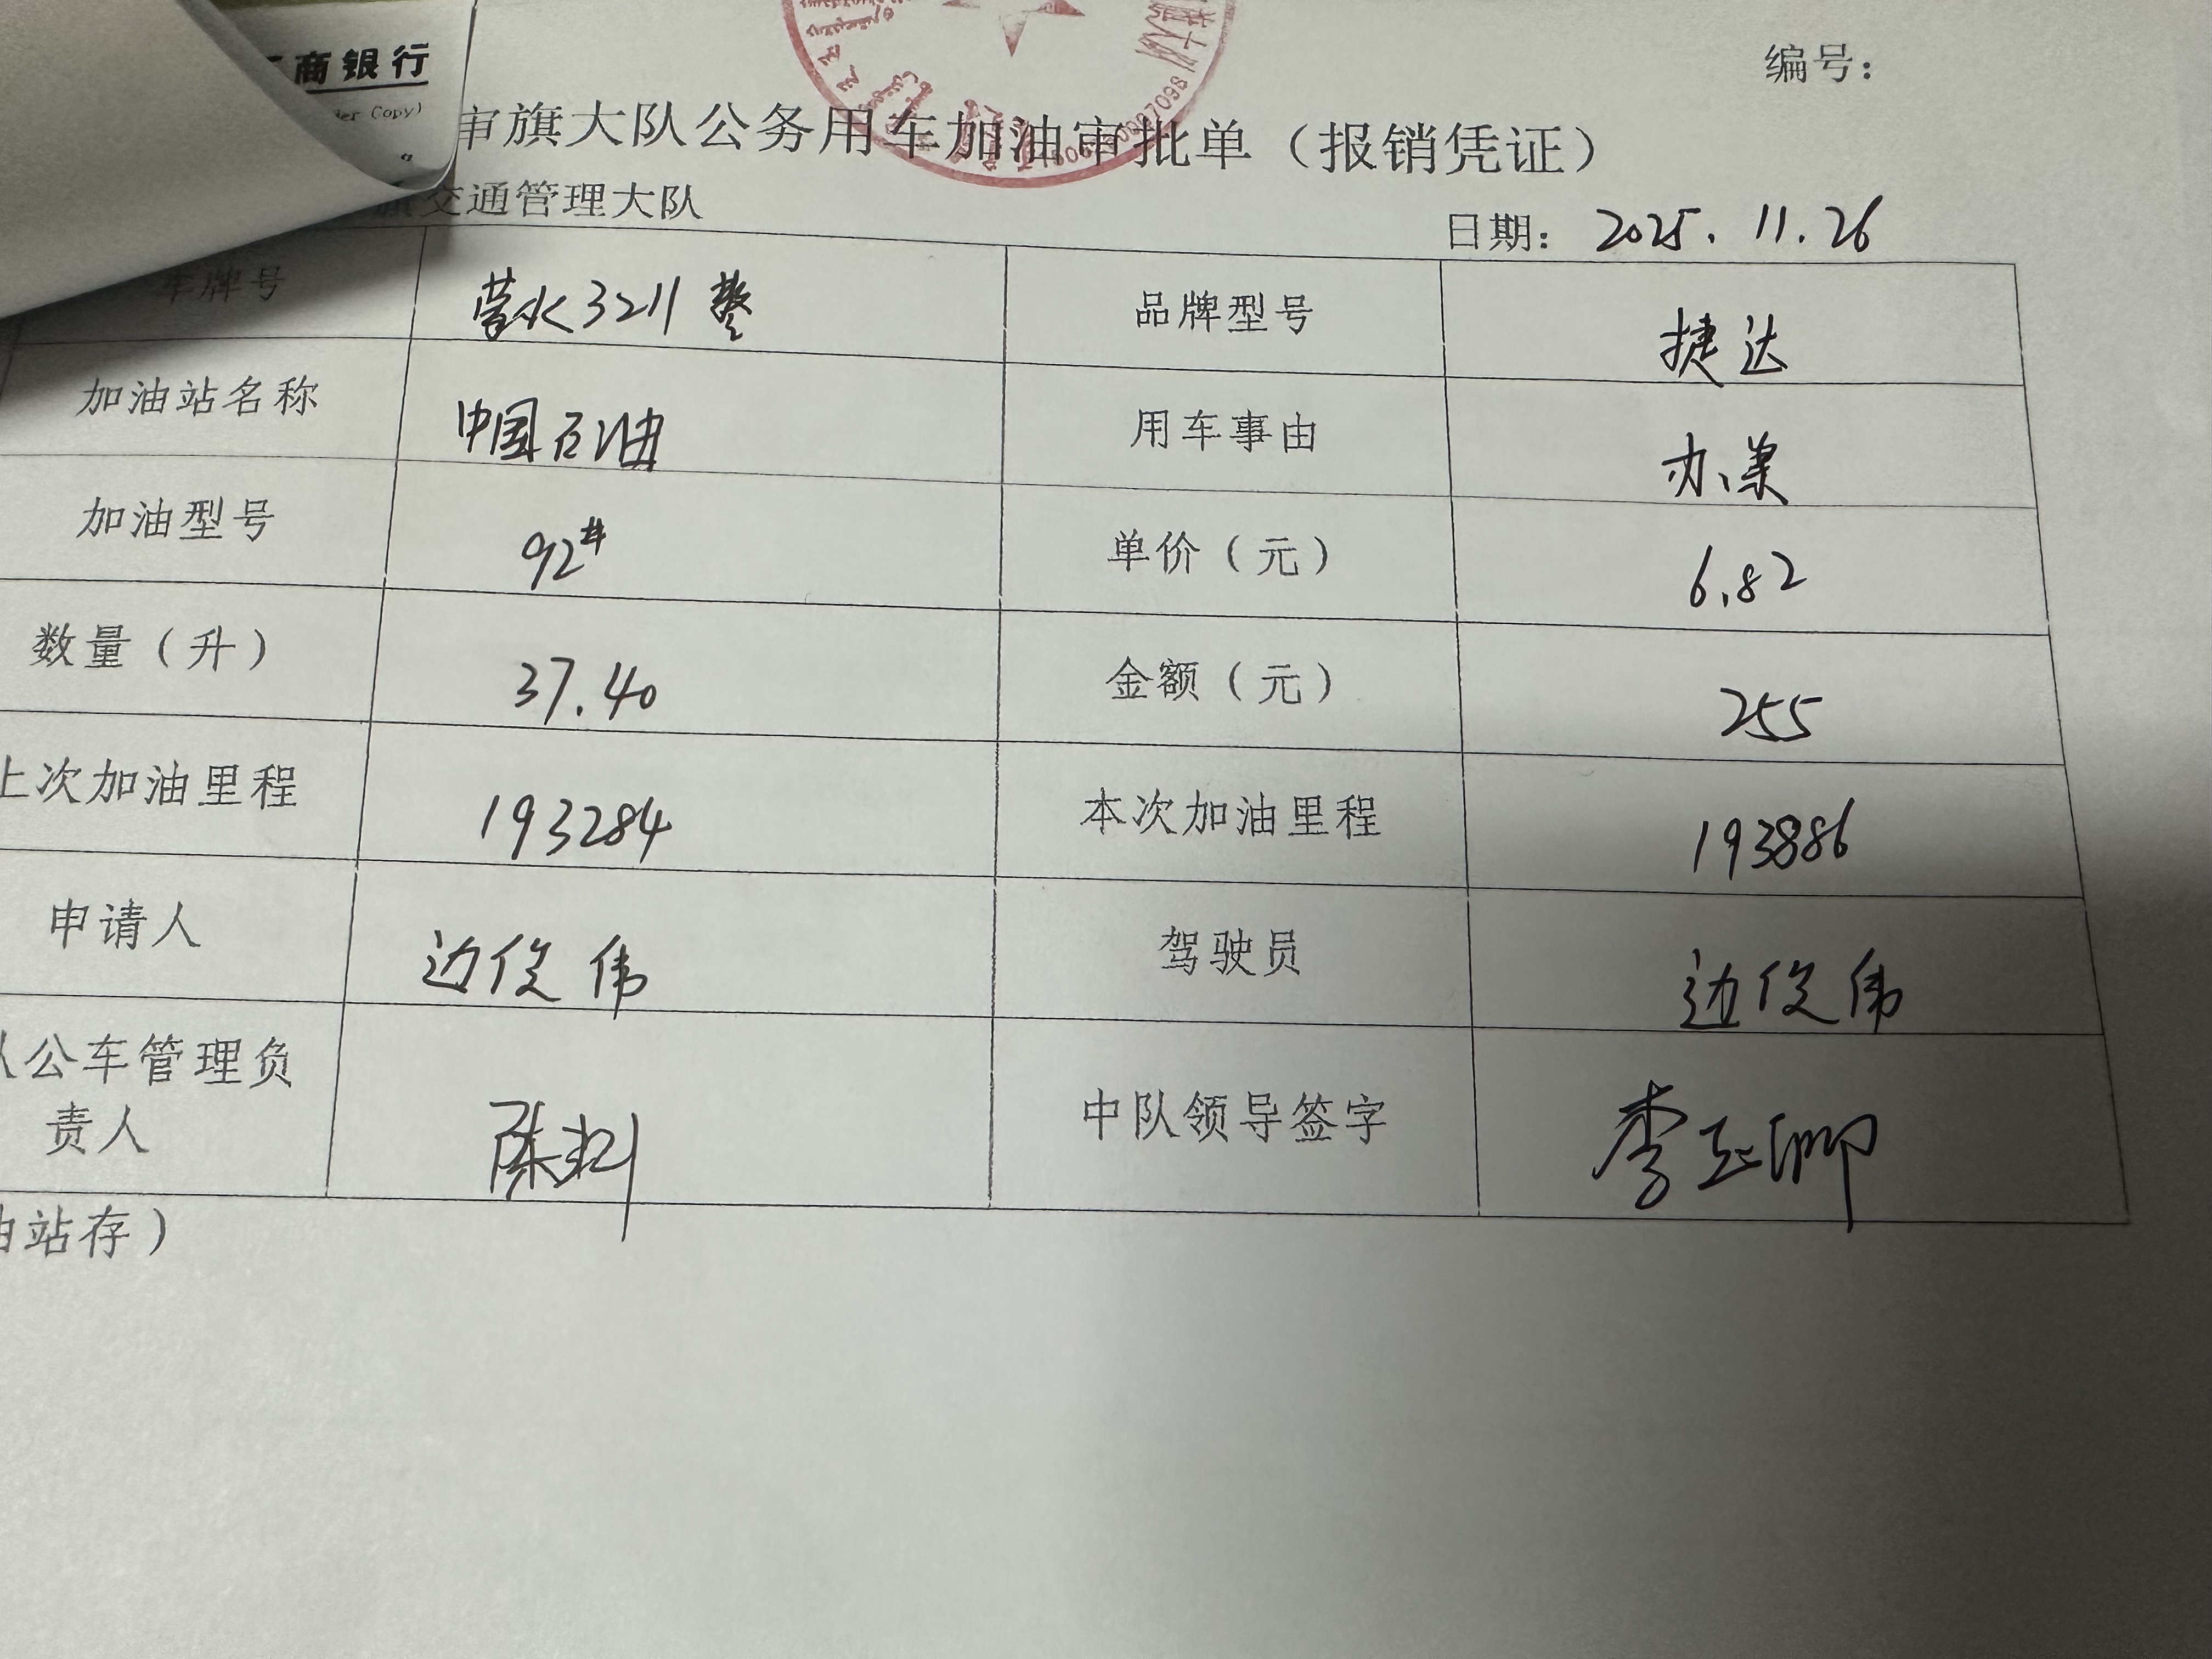 商银行
Copy)
编号：
审旗大队公务用车加油审批单（报销凭证）
旗交通管理大队
日期： 2025. 11. 26
车牌号 蒙K3211警 品牌型号 捷达
加油站名称 中国石油 用车事由 办案
加油型号 92# 单价（元） 6.82
数量（升） 37.40 金额（元） 255
上次加油里程 193284 本次加油里程 193886
申请人 边俊伟 驾驶员 边俊伟
公车管理负
责人 中队领导签字
站存）